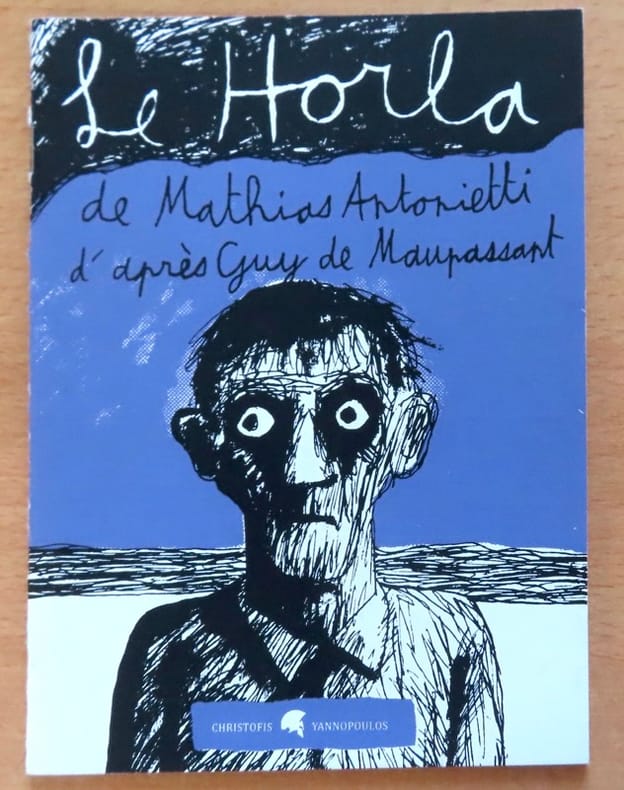 Le Horla
de Mathias Antonietti
d'après Guy de Maupassant
CHRISTOFIS YANNOPOULOS